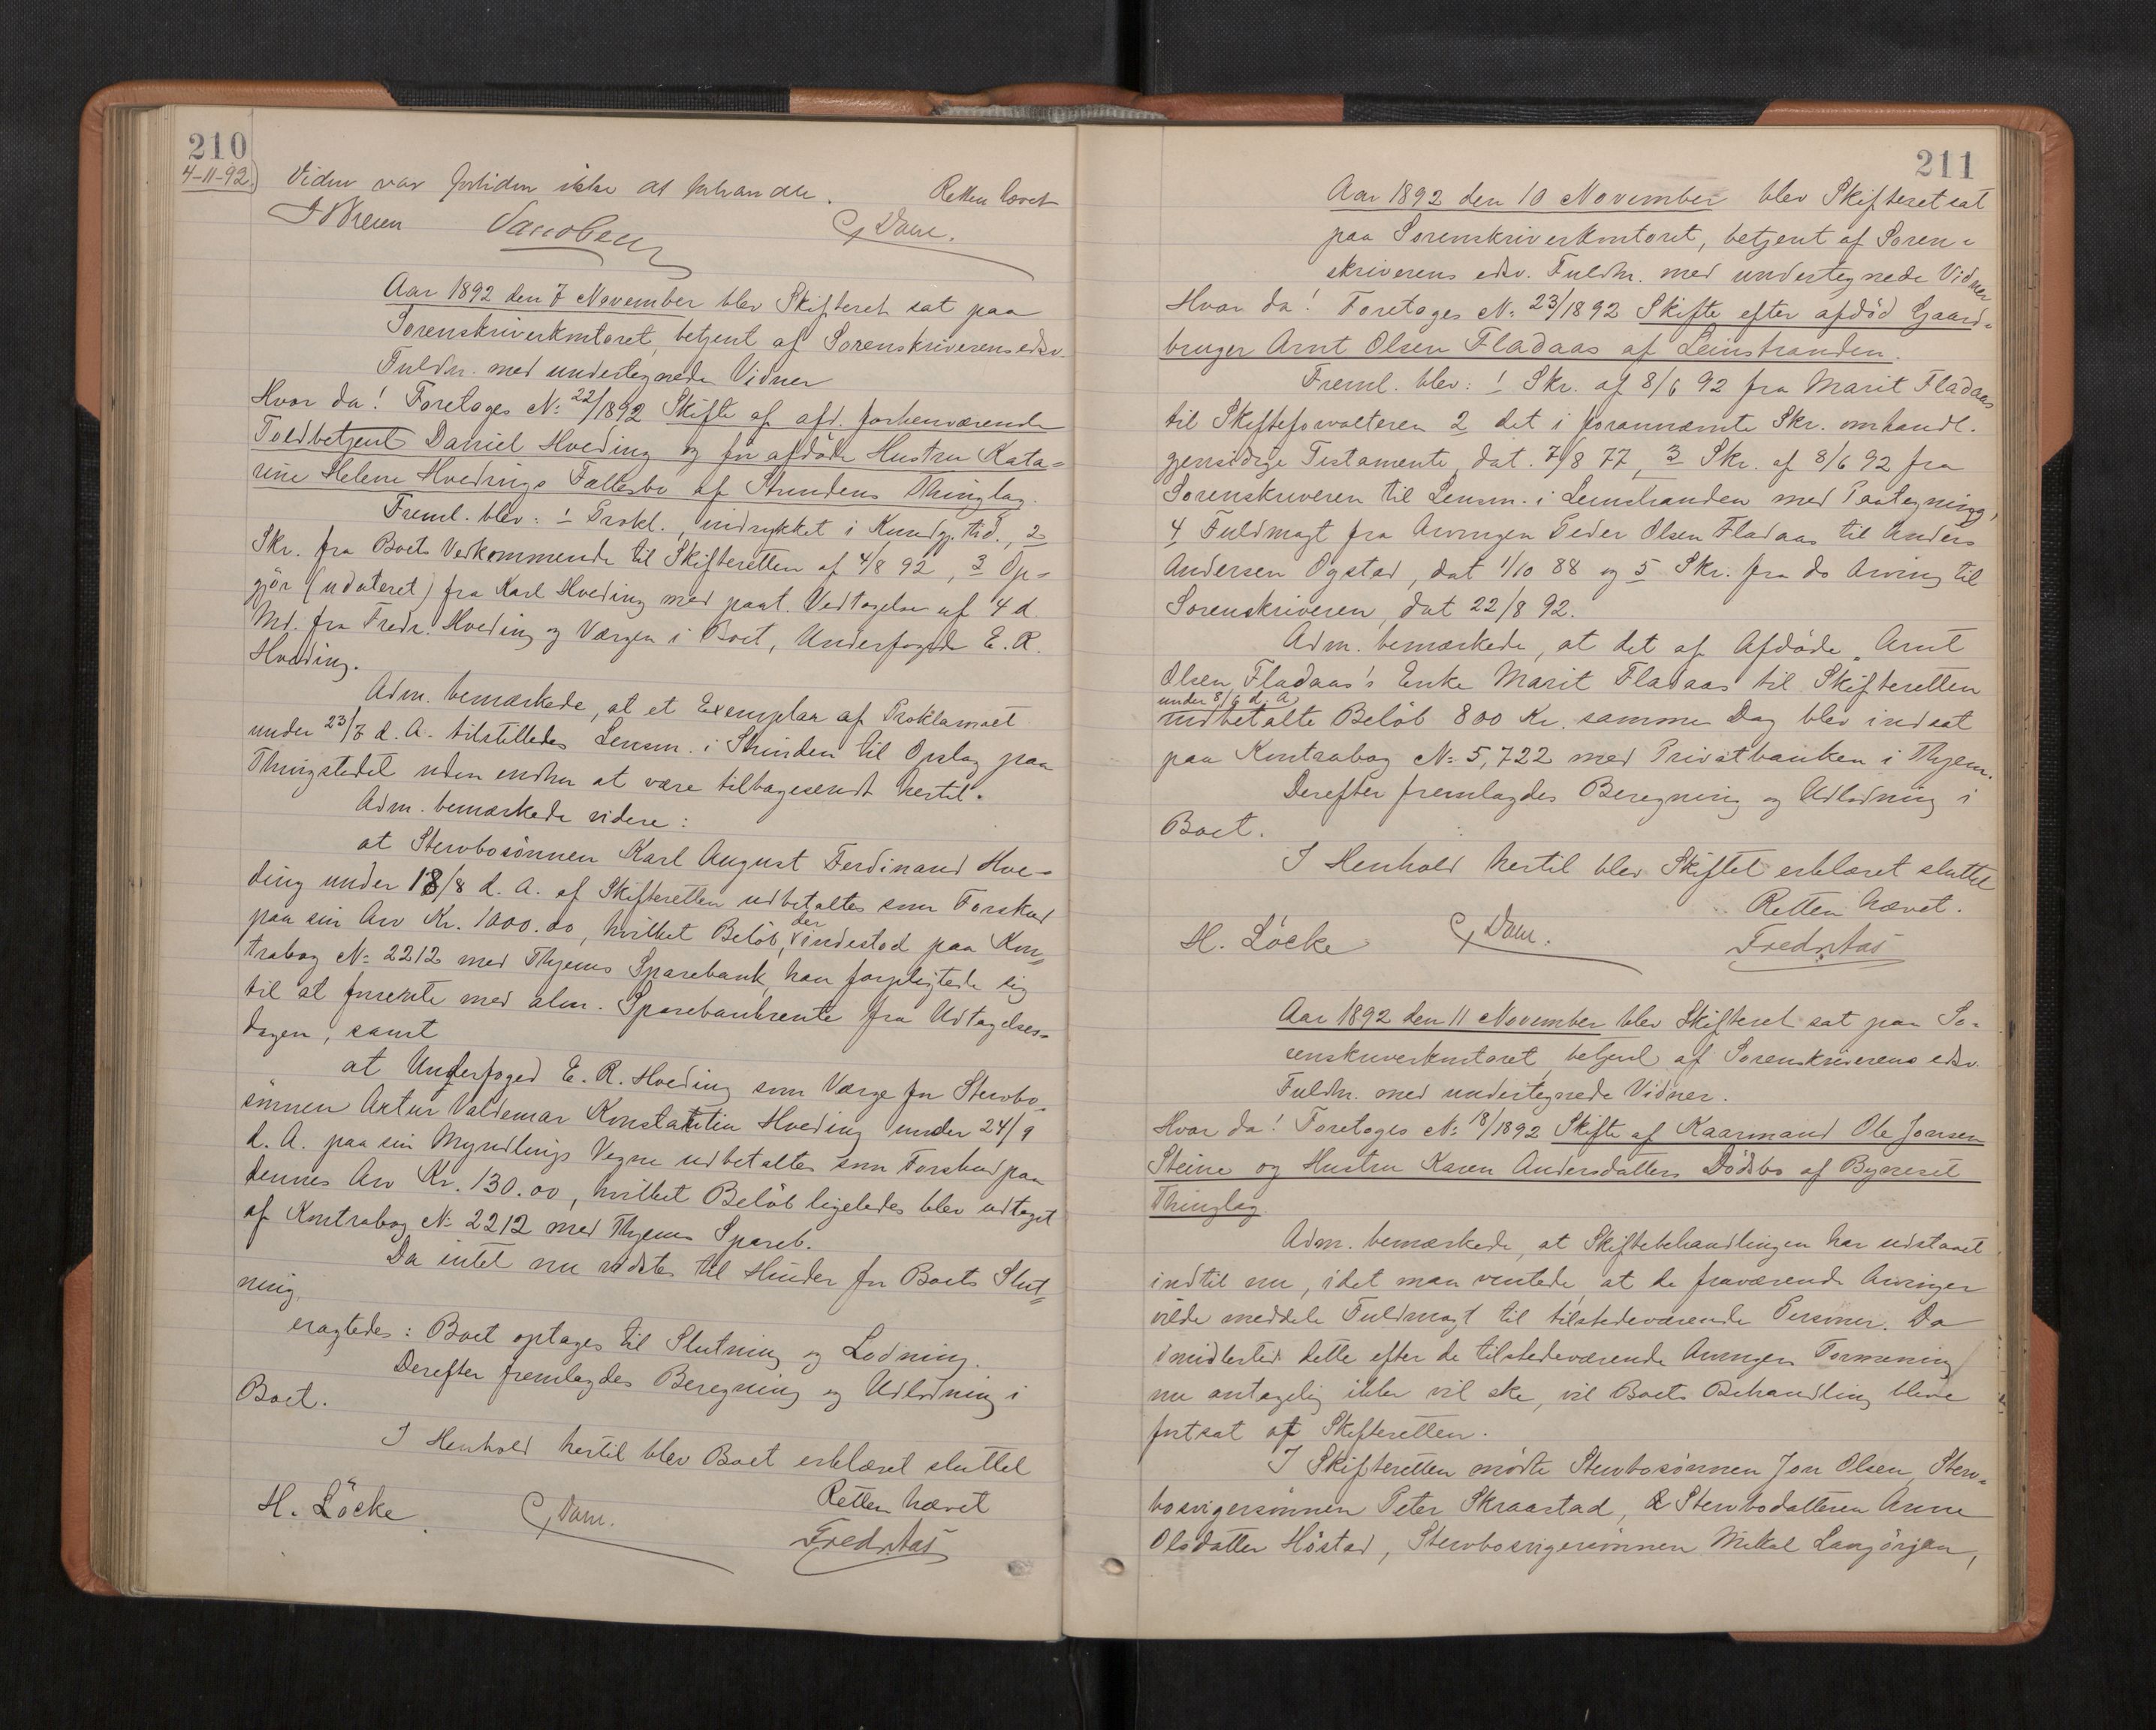 210
4-11-92)
Videre var fortiden ikke at behandle. Retten hævet
C, Dam.
Aar 1892 den 7 November blev Skifteret sat paa
Sorenskriverkontoret, betjent af Sorenskriverens edsv.
Fuldm. med undertegnede Vidner
Hvor da! Foretoges No 22/1892 Skifte af afd. forhenværende
Toldbetjent Daniel Hveding og før afdøde Hustru Kata=
rine Helene Hvedings Fællesbo af Strindens Thinglag.
Freml. blev: 1 Prokl., indrykket i Kundgj. tid., 2
Skr. fra Boets Vedkommende til Skifteretten af 4/8 92, 3 Op=
gjør (udateret) fra Karl Hveding med paat. Vedtagelse af 4 d.
Md. fra Fredr. Hveding og Værgen i Boet, Underfoged E. R.
Hveding.
Adm. bemærkede, at et Exemplar af Proklamaet
under 23/7 d. A. tilstilledes Lensm. i Strinden til Opslag paa
Thingstedet uden endnu at være tilbagesendt hertil.
Adm. bemærkede videre:
at Stervbosønnen Karl August Ferdinand Hve=
ding under 18/8 d. A. af Skifteretten udbetaltes som Forskud
paa sin Arv Kr. 1000.00, hvilket Beløb, der indestod paa Kon=
trabog No 2212 med Thjems Sparebank, han forpligtede sig
til at forrente med alm. Sparebankrente fra Udtagelses=
dagen, samt
at Underfoged E. R. Hveding som Værge for Stervbo=
sønnen Artur Valdemar Konstantin Hveding under 24/9
d. A. paa sin Myndlings Vegne udbetaltes som Forskud paa
dennes Arv Kr. 130.00, hvilket Beløb ligeledes blev udtaget
af Kontrabog No 2212 med Thjems Spareb.
Da intet nu vidstes til Hinder for Boets Slut=
ning,
eragtedes: Boet optages til Slutning og Lodning.
Derefter fremlagdes Beregning og Udlodning i
Boet.
I Henhold hertil blev Boet erklæret sluttet
Retten hævet
H. Löcke C, Dam.
211
Aar 1892 den 10 November blev Skifteret sat
paa Sorenskriverkontoret, betjent af Soren=
skriverens edsv. Fuldm. med undertegnede Vidner
Hvor da! Foretoges No 23/1892 Skifte efter afdød Gaard=
bruger Arnt Olsen Fladaas af Leinstranden.
Freml. blev: 1 Skr. af 8/6 92 fra Marit Fladaas
til Skifteforvalteren 2 det i forannævnte Skr. omhandl.
gjensidige Testamente, dat. 7/8 77, 3 Skr. af 8/6 92 fra
Sorenskriveren til Lensm. i Leinstranden med Paategning,
4 Fuldmagt fra Arvingen Peder Olsen Fladaas til Anders
Andersen Ogstad, dat 1/10 88 og 5 Skr. fra do Arving til
Sorenskriveren, dat 22/8 92.
Adm. bemærkede, at det af Afdøde Arnt
Olsen Fladaas's Enke Marit Fladaas til Skifteretten
under 8/6 d. A.
indbetalte Beløb 800 Kr. samme Dag blev indsat
paa Kontrabog No 5,722 med Privatbanken i Thjem.
Derefter fremlagdes Beregning og Udlodning i
Boet.
I Henhold hertil blev Skiftet erklæret sluttet
Retten hævet.
H. Löcke C, Dam.
Aar 1892 den 11 November blev Skifteret sat paa So=
renskriverkontoret, betjent af Sorenskriverens edsv.
Fuldm. med undertegnede Vidner.
Hvor da! Foretoges No 18/1892 Skifte af Kaarmand Ole Jonsen
Steine og Hustru Karen Andersdatters Dødsbo af Bynesset
Thinglag.
Adm. bemærkede, at Skiftebehandlingen har udstaaet
indtil nu, idet man ventede, at de fraværende Arvinger
vilde meddele Fuldmagt til tilstedeværende Personer. Da
imidlertid dette efter de tilstedeværende Arvingers Formening
nu antagelig ikke vil ske, vil Boets Behandling blive
fortsat af Skifteretten.
I Skifteretten mødte Stervbosønnen Jon Olsen, Sterv=
bosvigersønnen Peter Skraastad, Stervbodatteren Anne
Olsdatter Høstad, Stervbosvigersønnen Mikal Langørjen,